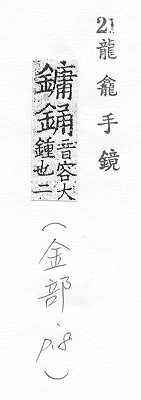 21 龍龕手鏡
鏞銿音容大鍾也二
(金部.p.8)